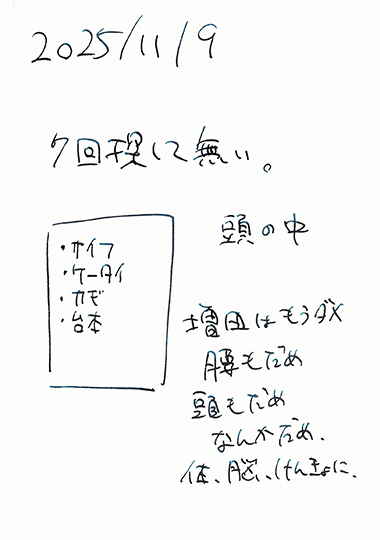 2025/11/9
7回探して無い。
頭の中
・サイフ
・ケータイ
・カギ
・台本
増田はもうダメ
腰もだめ
頭もだめ
なんかだめ、
体、脳、けんきょに、